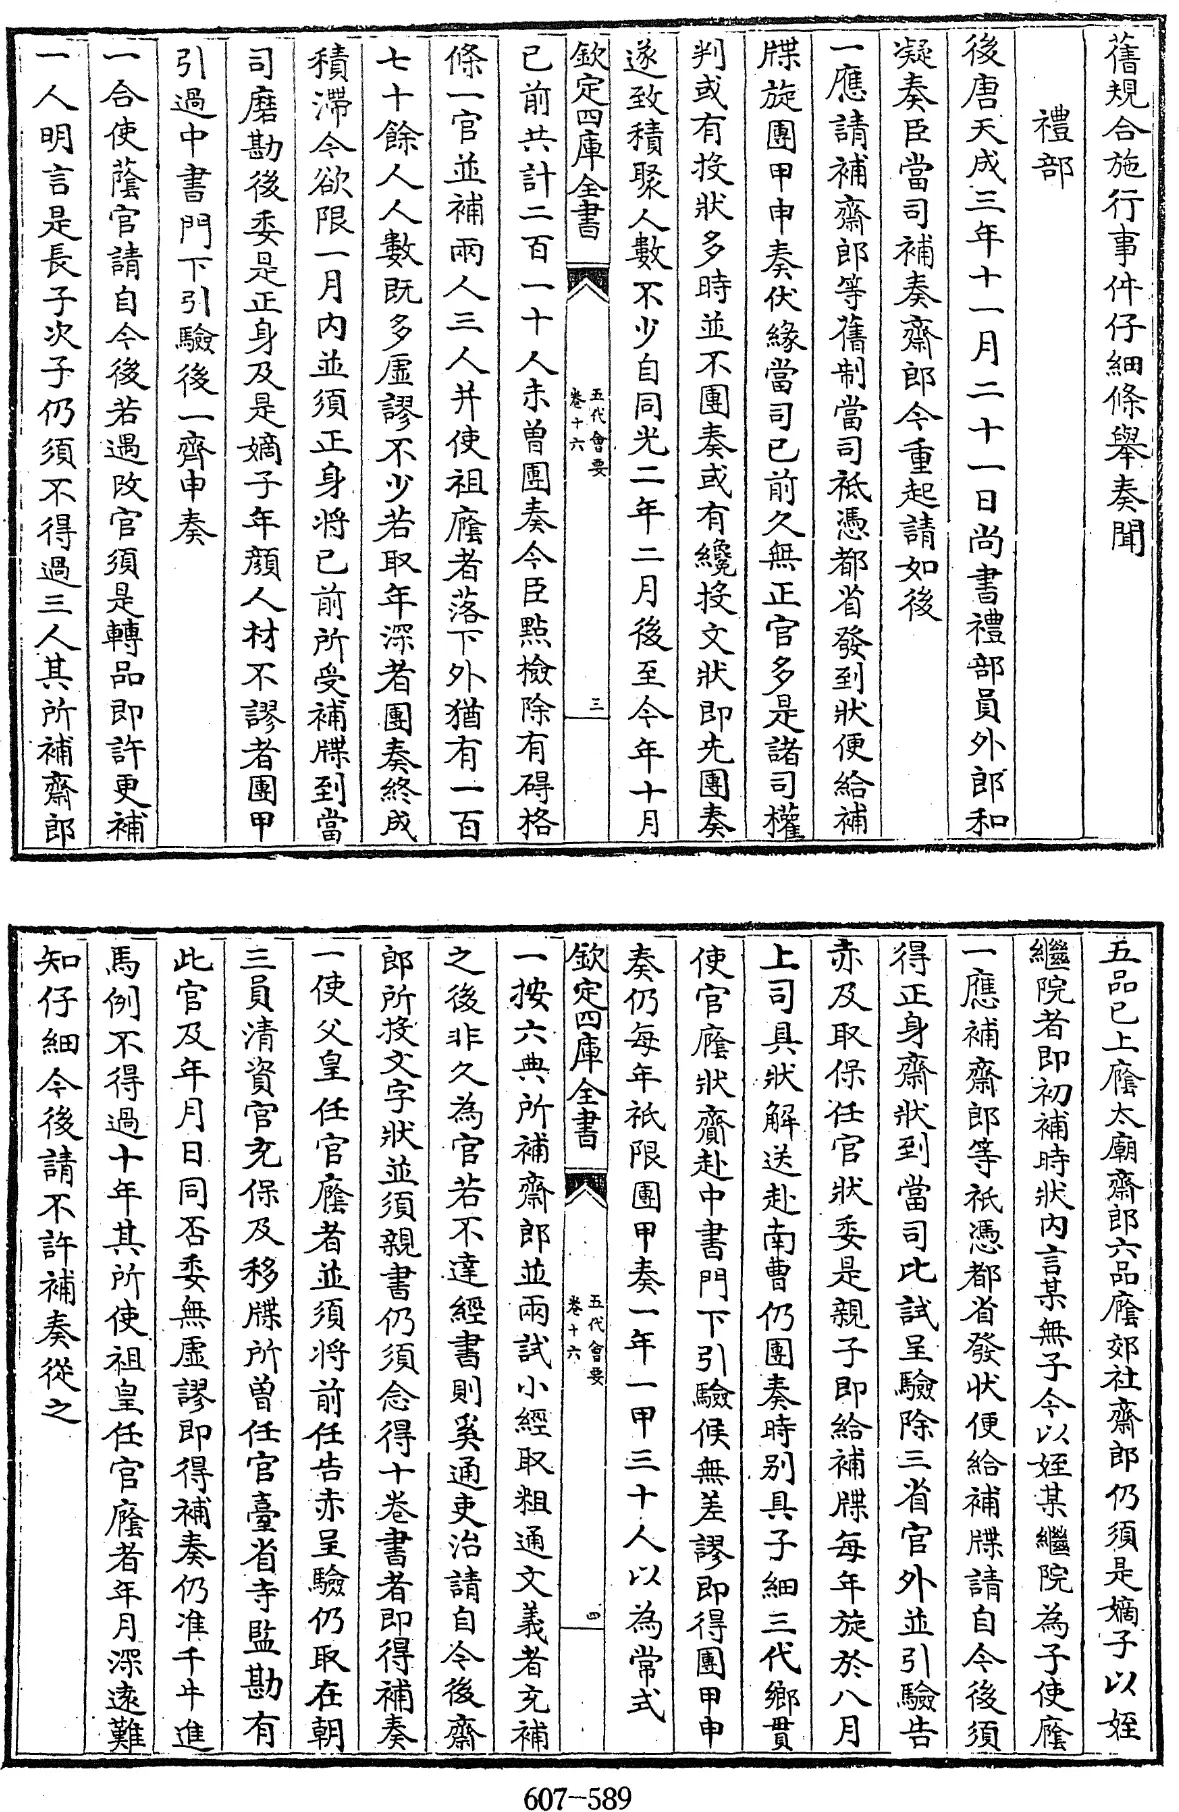 舊規合施行事件仔細條舉奏聞
禮部
後唐天成三年十一月二十一日尚書禮部員外郎和
凝奏臣當司補奏齋郎今重起請如後
一應請補齋郎等舊制當司祗憑都省發到狀便給補
牒旋團甲申奏伏緣當司已前久無正官多是諸司權
判或有投狀多時並不團奏或有纔投文狀即先團奏
遂致積聚人數不少自同光二年二月後至今年十月
欽定四庫全書
五代會要
卷十六
三
已前共計二百一十人未曾團奏今臣㸃檢除有碍格
條一官並補兩人三人并使祖廕者落下外猶有一百
七十餘人人數既多虛謬不少若取年深者團奏終成
積滯今欲限一月內並須正身將已前所受補牒到當
司磨勘後委是正身及是嫡子年顔人材不謬者團甲
引過中書門下引驗後一齊申奏
一合使蔭官請自今後若遇改官須是轉品即許更補
一人明言是長子次子仍須不得過三人其所補齋郎
五品已上廕太廟齋郎六品廕郊社齋郎仍須是嫡子以姪
繼院者即初補時狀內言某無子今以姪某繼院為子使廕
一應補齋郎等祗憑都省發狀便給補牒請自今後須
得正身齋狀到當司比試呈驗除三省官外並引驗告
赤及取保任官狀委是親子即給補牒每年旋於八月
上司具狀解送赴南曹仍團奏時別具子細三代鄉貫
使官廕狀齎赴中書門下引驗候無差謬即得團甲申
奏仍每年祗限團甲奏一年一甲三十人以為常式
欽定四庫全書
五代會要
卷十六
四
一按六典所補齋郎並兩試小經取粗通文義者充補
之後非久為官若不達經書則奚通吏治請自今後齋
郎所投文字狀並須親書仍須念得十卷書者即得補奏
一使父皇任官廕者並須將前任告赤呈驗仍取在朝
三員清資官充保及移牒所曾任官臺省寺監勘有
此官及年月日同否委無虛謬即得補奏仍准千牛進
馬例不得過十年其所使祖皇任官廕者年月深遠難
知仔細今後請不許補奏從之
607-589